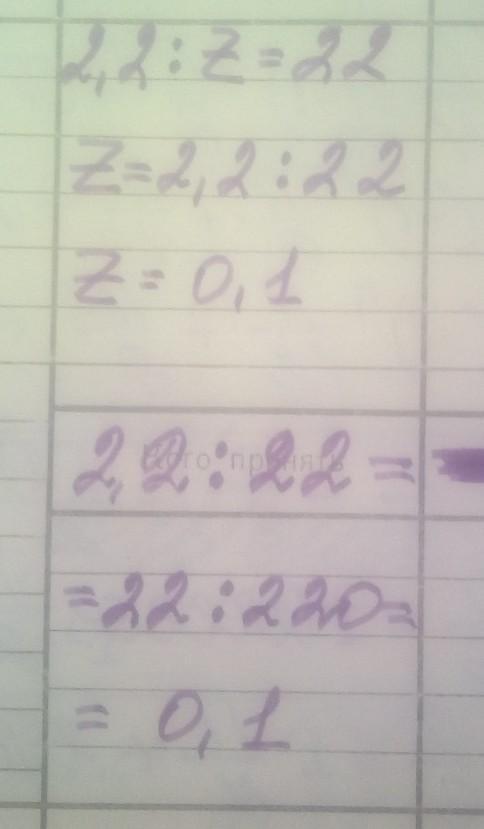 2,2 : z = 22
z = 2,2 : 22
z = 0,1
Кого принять
2,2 : 22 =
= 22 : 220 =
= 0,1